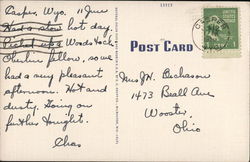 Casper, Wyo. 11 June
Had a stow hot day.
Picked up a Woodstock
Oberlin fellow, so we
had a very pleasant
afternoon. Hot and
dusty. Going on
further tonight.
Chas
POST CARD
Mrs J H. Buchason
1473 Beall Ave
Wooster,
Ohio